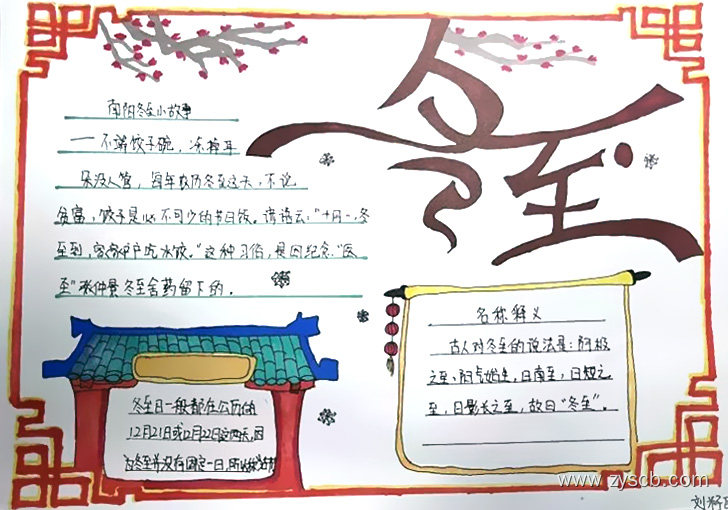 冬至
南阳冬至小故事
——不端饺子碗，冻掉耳
朵没人管，每年农历冬至这天，不论
贫富，饺子是必不可少的节日饭。谚语云："十月一，冬
至到，家家户户吃水饺。"这种习俗，是因纪念"医
圣"张仲景冬至舍药留下的。
名称释义
古人对冬至的说法是：阴极
之至，阳气始生，日南至，日短之
至，日影长之至，故曰"冬至"。
冬至日一般都在公历的
12月21日或12月22日这两天，因
为冬至并没有固定一日，所以
www.zyscb.com